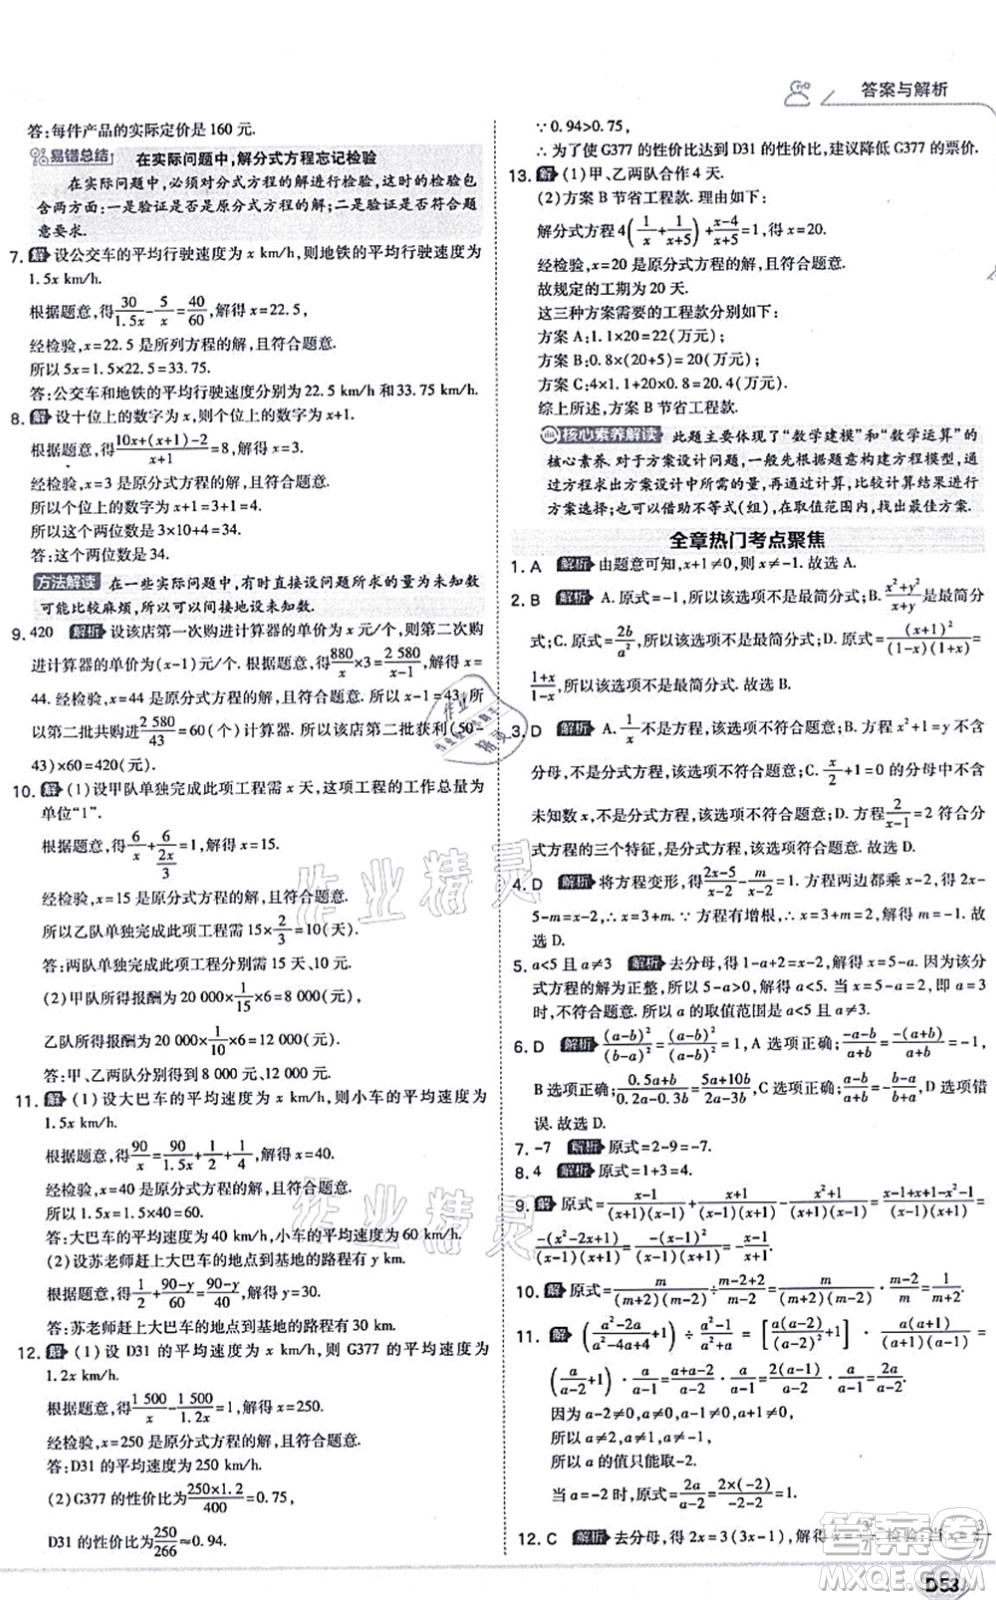 答案与解析
答:每件产品的实际定价是 160 元.
易错总结 在实际问题中,解分式方程忘记检验
在实际问题中,必须对分式方程的解进行检验,这时的检验包
含两方面:一是验证是否是原分式方程的解;二是验证是否符合题
意要求.
7. 解 设公交车的平均行驶速度为 x km/h,则地铁的平均行驶速度为
1.5x km/h.
根据题意,得30/1.5x-5/x=40/60,解得 x=22.5,
经检验,x=22.5 是所列方程的解,且符合题意.
所以 5x=1.5×22.5=33.75.
答:公交车和地铁的平均行驶速度分别为 22.5 km/h 和 33.75 km/h.
8. 解 设十位上的数字为 x,则个位上的数字为 x+1.
根据题意,得(10x+(x+1)-2)/(x+1)=8,解得 x=3.
经检验,x=3 是原分式方程的解,且符合题意.
所以个位上的数字为 x+1=3+1=4.
所以这个两位数是 3×10+4=34.
答:这个两位数是 34.
方法解读 在一些实际问题中,有时直接设问题所求的量为未知数
可能比较麻烦,所以可以间接地设未知数.
9. 420 解析 设该店第一次购进计算器的单价为 x 元/个,则第二次购
进计算器的单价为(x-1)元/个. 根据题意,得880/x×3=2 580/(x-1),解得 x=
44. 经检验,x=44 是原分式方程的解,且符合题意. 所以 x-1=43,所
以第二批共购进2 580/43=60(个)计算器. 所以该店第二批获利(50-
43)×60=420(元).
10. 解 (1)设甲队单独完成此项工程需 x 天,这项工程的工作总量为
单位“1”.
根据题意,得6/x+6/(2x/3)=1,解得 x=15.
经检验,x=15 是原分式方程的解,且符合题意.
所以乙队单独完成此项工程需 15×2/3=10(天).
答:两队单独完成此项工程分别需 15 天、10 天.
(2)甲队所得报酬为 20 000×1/15×6=8 000(元),
乙队所得报酬为 20 000×1/10×6=12 000(元).
答:甲、乙两队分别得到 8 000 元、12 000 元.
11. 解 (1)设大巴车的平均速度为 x km/h,则小车的平均速度为
1.5x km/h.
根据题意,得90/x=90/1.5x+1/2+1/4,解得 x=40.
经检验,x=40 是原分式方程的解,且符合题意.
所以 1.5x=1.5×40=60.
答:大巴车的平均速度为 40 km/h,小车的平均速度为 60 km/h.
(2)设苏老师赶上大巴车的地点到基地的路程有 y km.
根据题意,得1/2+(90-y)/60=(90-y)/40,解得 y=30.
答:苏老师赶上大巴车的地点到基地的路程有 30 km.
12. 解 (1)设 D31 的平均速度为 x km/h,则 G377 的平均速度为
1.2x km/h.
根据题意,得1 500/x-1 500/1.2x=1,解得 x=250.
经检验,x=250 是原分式方程的解,且符合题意.
答:D31 的平均速度为 250 km/h.
(2)G377 的性价比为(250×1.2)/400=0.75,
D31 的性价比为250/266≈0.94.
∵ 0.94>0.75,
∴ 为了使 G377 的性价比达到 D31 的性价比,建议降低 G377 的票价.
13. 解 (1)甲、乙两队合作 4 天.
(2)方案 B 节省工程款. 理由如下:
解分式方程 4(1/x+1/(x+5))+(x-4)/(x+5)=1,得 x=20.
经检验,x=20 是原分式方程的解,且符合题意.
故规定的工期为 20 天.
这三种方案需要的工程款分别如下:
方案 A:1.1×20=22(万元);
方案 B:0.8×(20+5)=20(万元);
方案 C:4×1.1+20×0.8=20.4(万元).
综上所述,方案 B 节省工程款.
核心素养解读 此题主要体现了“数学建模”和“数学运算”的
核心素养. 对于方案设计问题,一般先根据题意构建方程模型,通
过方程求出方案设计中所需的量,再进行计算,比较计算结果进行
方案选择;也可以借助不等式(组),在取值范围内,找出最佳方案.
全章热门考点聚焦
1. A 解析 由题意可知,x+1≠0,则 x≠-1. 故选 A.
2. B 解析 A. 原式=-1,所以该选项不是最简分式;B. (x²+y²)/(x+y)是最简分
式;C. 原式=2b/a²,所以该选项不是最简分式;D. 原式=(x+1)²/((1-x)(1+x))=
(1+x)/(1-x),所以该选项不是最简分式. 故选 B.
3. D 解析 A. 1/x不是方程,故该选项不符合题意;B. 方程 x²+1=0 不含
分母,不是分式方程,故该选项不符合题意;C. x/2+1=0 的分母中不含
未知数 x,不是分式方程,故该选项不符合题意;D. 方程2/(x-1)=1 符合分
式方程的三个特征,是分式方程,故该选项符合题意. 故选 D.
4. D 解析 将方程变形,得(2x-5)/(x-2)-m/(x-2)=1. 方程两边都乘 x-2,得 2x-
5-m=x-2,解得 x=3+m. ∵ 方程有增根,∴ x=3+m=2,解得 m=-1. 故
选 D.
5. a<5 且 a≠3 解析 去分母,得 1-a+2=x-2,解得 x=5-a. 因为该分
式方程的解为正整,所以 5-a>0,解得 a<5. 当 x=5-a=2,即 a=3
时,不符合题意. 所以 a 的取值范围为 a<5 且 a≠3.
6. D 解析 (a-b)²/(b-a)²=(a-b)²/(a-b)²=1,A 选项正确;(-a-b)/(a+b)=-(a+b)/(a+b)=-1,
B 选项正确;(0.5a+b)/(0.2a-0.3b)=(5a+10b)/(2a-3b),C 选项正确;D 选项错
误. 故选 D.
7. -7 解析 原式=2-9=-7.
8. 4 解析 原式=1+3=4.
9. 解 原式=(x-1)/((x+1)(x-1))+(x-1)/((x+1)(x-1))-x²/((x+1)(x-1))=(x-1+x-1-x²)/((x+1)(x-1))=
-(x²-2x+1)/((x-1)(x+1))=-(x-1)²/((x-1)(x+1))=(-x+1)/(x+1).
10. 解 原式=m/((m+2)(m-2))÷(m-2+2)/(m-2)=m/((m+2)(m-2))·(m-2)/m=1/(m+2).
11. 解 ((a²-2a)/(a²-4a+4)+1)÷(a²-1)/(a²+a)=[a(a-2)/(a-2)²+1]·a(a+1)/((a+1)(a-1))=
(a/(a-2)+1)·a/(a-1)=(a+a-2)/(a-2)·a/(a-1)=2(a-1)/(a-2)·a/(a-1)=2a/(a-2).
因为 a-2≠0,a-1≠0,a+1≠0,
所以 a≠2,a≠1,a≠-1.
所以 a 的值只能取-2.
当 a=-2 时,原式=2a/(a-2)=2×(-2)/(-2-2)=1.
12. C 解析 去分母,得 2x=3(3x-1),解得 x=3/7. 检验:当 x=3/7
D53
作业精灵
作业精灵
答案圈
MXQE.COM